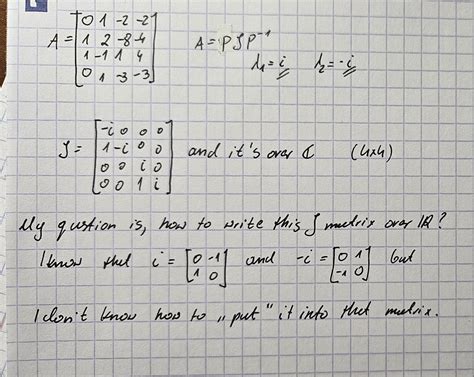 A = [0 1 -2 -2
1 2 -8 -4
1 -1 1 4
0 1 -3 -3]
A = PJP⁻¹
λ₁ = i λ₂ = -i
J = [-i 0 0 0
1 -i 0 0
0 0 i 0
0 0 1 i] and it's over ℂ (4x4)
My qustion is, how to write this J matrix over ℝ?
I know that i = [0 -1
1 0] and -i = [0 1
-1 0] but
I don't know how to „put" it into that matrix.